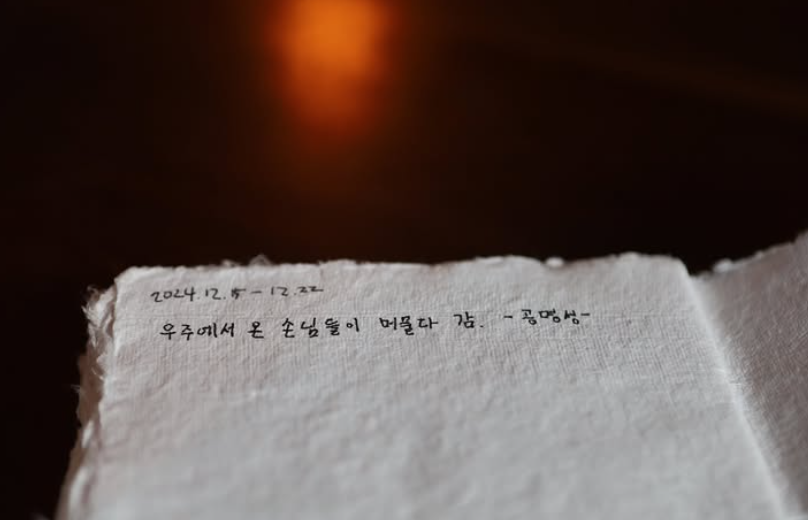 2024.12.15 - 12.22
우주에서 온 손님들이 머물다 감. -공명성-